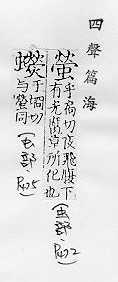 四聲篇海
螢
乎扃切夜飛腹下
有光腐草所化也
(虫部.
于扃切
与螢同
(虫部.